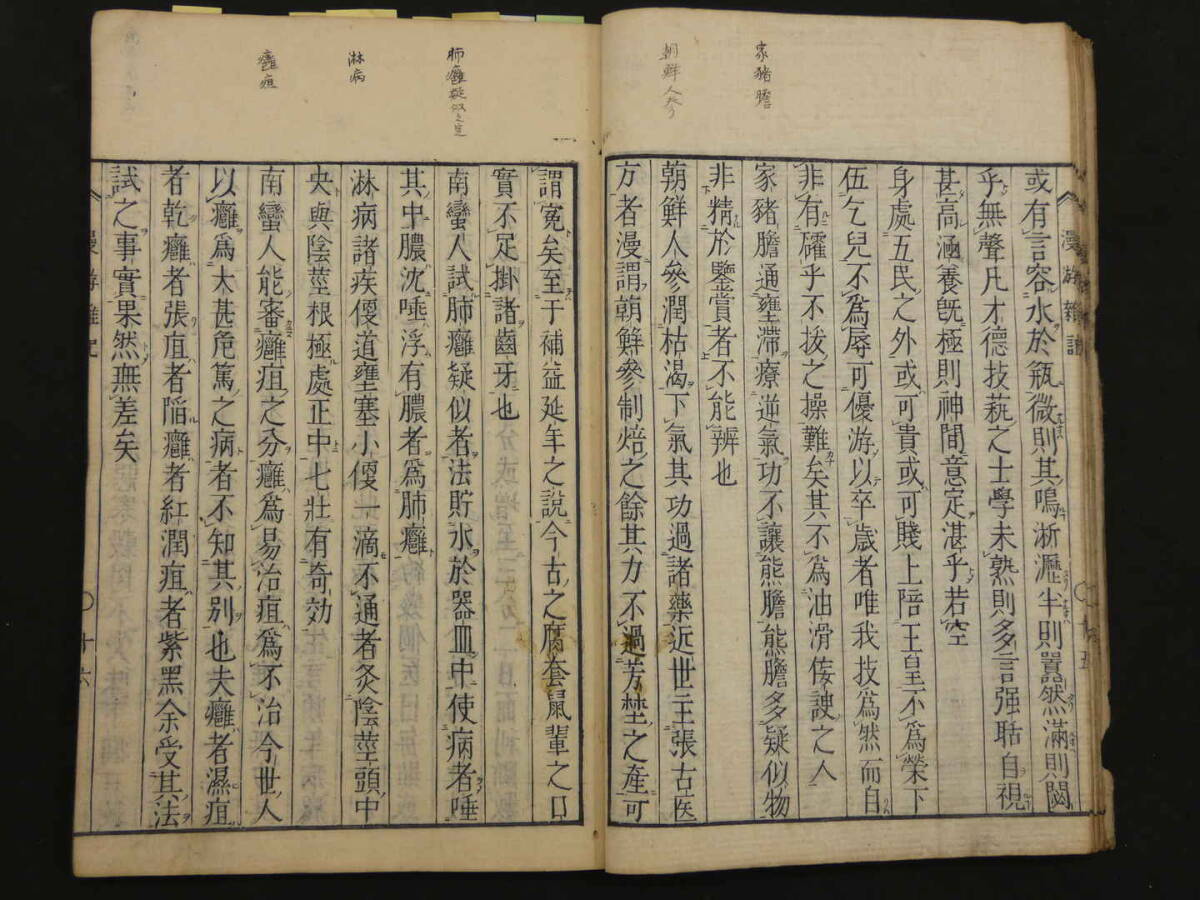 家豬膽
朝鮮人參
漫游雜記
十五
或有言容水於瓶微則其鳴淅瀝半則囂然滿則闃
乎無聲凡才德技藝之士學未熟則多言强聒自視
甚高涵養旣極則神間意定湛乎若空
身處五民之外或可貴或可賤上陪王皇不爲榮下
伍乞兒不爲辱可優游以卒歲者唯我技爲然而自
非有確乎不拔之操難矣其不爲油滑倿諛之人
家豬膽通壅滯療逆氣功不讓熊膽熊膽多疑似物
非精於鑒賞者不能辨也
朝鮮人參潤枯渴下氣其功過諸藥近世主張古医
方者漫謂朝鮮參制焙之餘其力不過芳埜之產可
肺癰疑似之
淋病
癰疽
謂寃矣至于補益延年之說今古之腐套鼠輩之口
實不足掛諸齒牙也
南蠻人試肺癰疑似者法貯水於器皿中使病者唾
其中膿沈唾浮有膿者爲肺癰
淋病諸疾偄道壅塞小偄一滴不通者灸陰莖頭中
央與陰莖根極處正中七壯有奇効
南蠻人能審癰疽之分癰爲易治疽爲不治今世人
以癰爲太甚危篤之病者不知其別也夫癰者濕疽
者乾癰者張疽者陷癰者紅潤疽者紫黑余受其法
試之事實果然無差矣
漫游雜記
十六